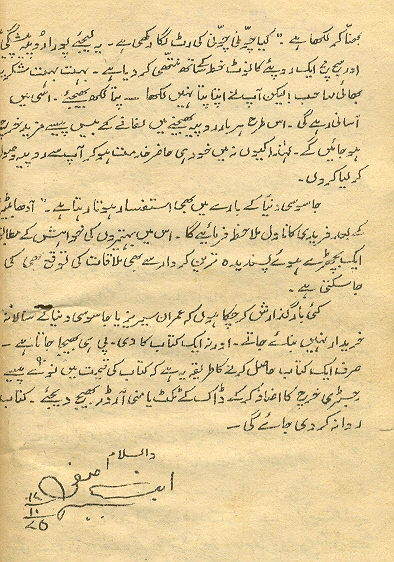 بھنّا کر لکھا ہے۔ "کیا چونّی چونّی کی رٹ لگا رکھی ہے۔ یہ لیجئے پورا روپیہ پیشگی"
اور سچ مچ ایک روپئے کا نوٹ خط کے ساتھ نتھی کر دیا ہے۔ بہت بہت شکریہ
بھائی صاحب! لیکن آپ نے اپنا پتا نہیں لکھا ۔۔۔ پتا لکھ بھیجئے۔ اسی میں
آسانی رہے گی۔ اس طرح ہر بار روپیہ بھیجنے میں لفافے کے بیس پیسے مزید خرچ
ہو جائیں گے۔ لہٰذا کیوں نہ میں خود ہی حاضرِ خدمت ہو کر آپ سے روپیہ وصول
کر لیا کروں۔
جاسوسی دنیا کے بارے میں بھی استفسار ہوتا رہتا ہے۔ "آدھا بٹیر"
کے بعد فریدی کا ناول ملاحظہ فرمائیے گا۔ اس میں بہتیروں کی خواہش کے مطابق
ایک بچھڑے ہوئے پسندیدہ ترین کردار سے بھی ملاقات کی توقع بھی کی
جا سکتی ہے۔
کئی بار گذارش کر چکا ہوں کہ عمران سیریز یا جاسوسی دنیا کے سالانہ
خریدار نہیں بنائے جاتے۔ اور نہ ایک کتاب کا وی۔ پی ہی بھیجا جاتا ہے۔
صرف ایک کتاب حاصل کرنے کا طریقہ یہ ہے کہ کتاب کی قیمت میں نوّے پیسے
رجسٹری خرچ کا اضافہ کر کے ڈاک کے ٹکٹ یا منی آرڈر بھیج دیجئے۔ کتاب
روانہ کر دی جائے گی۔
والسلام
ابن صفی